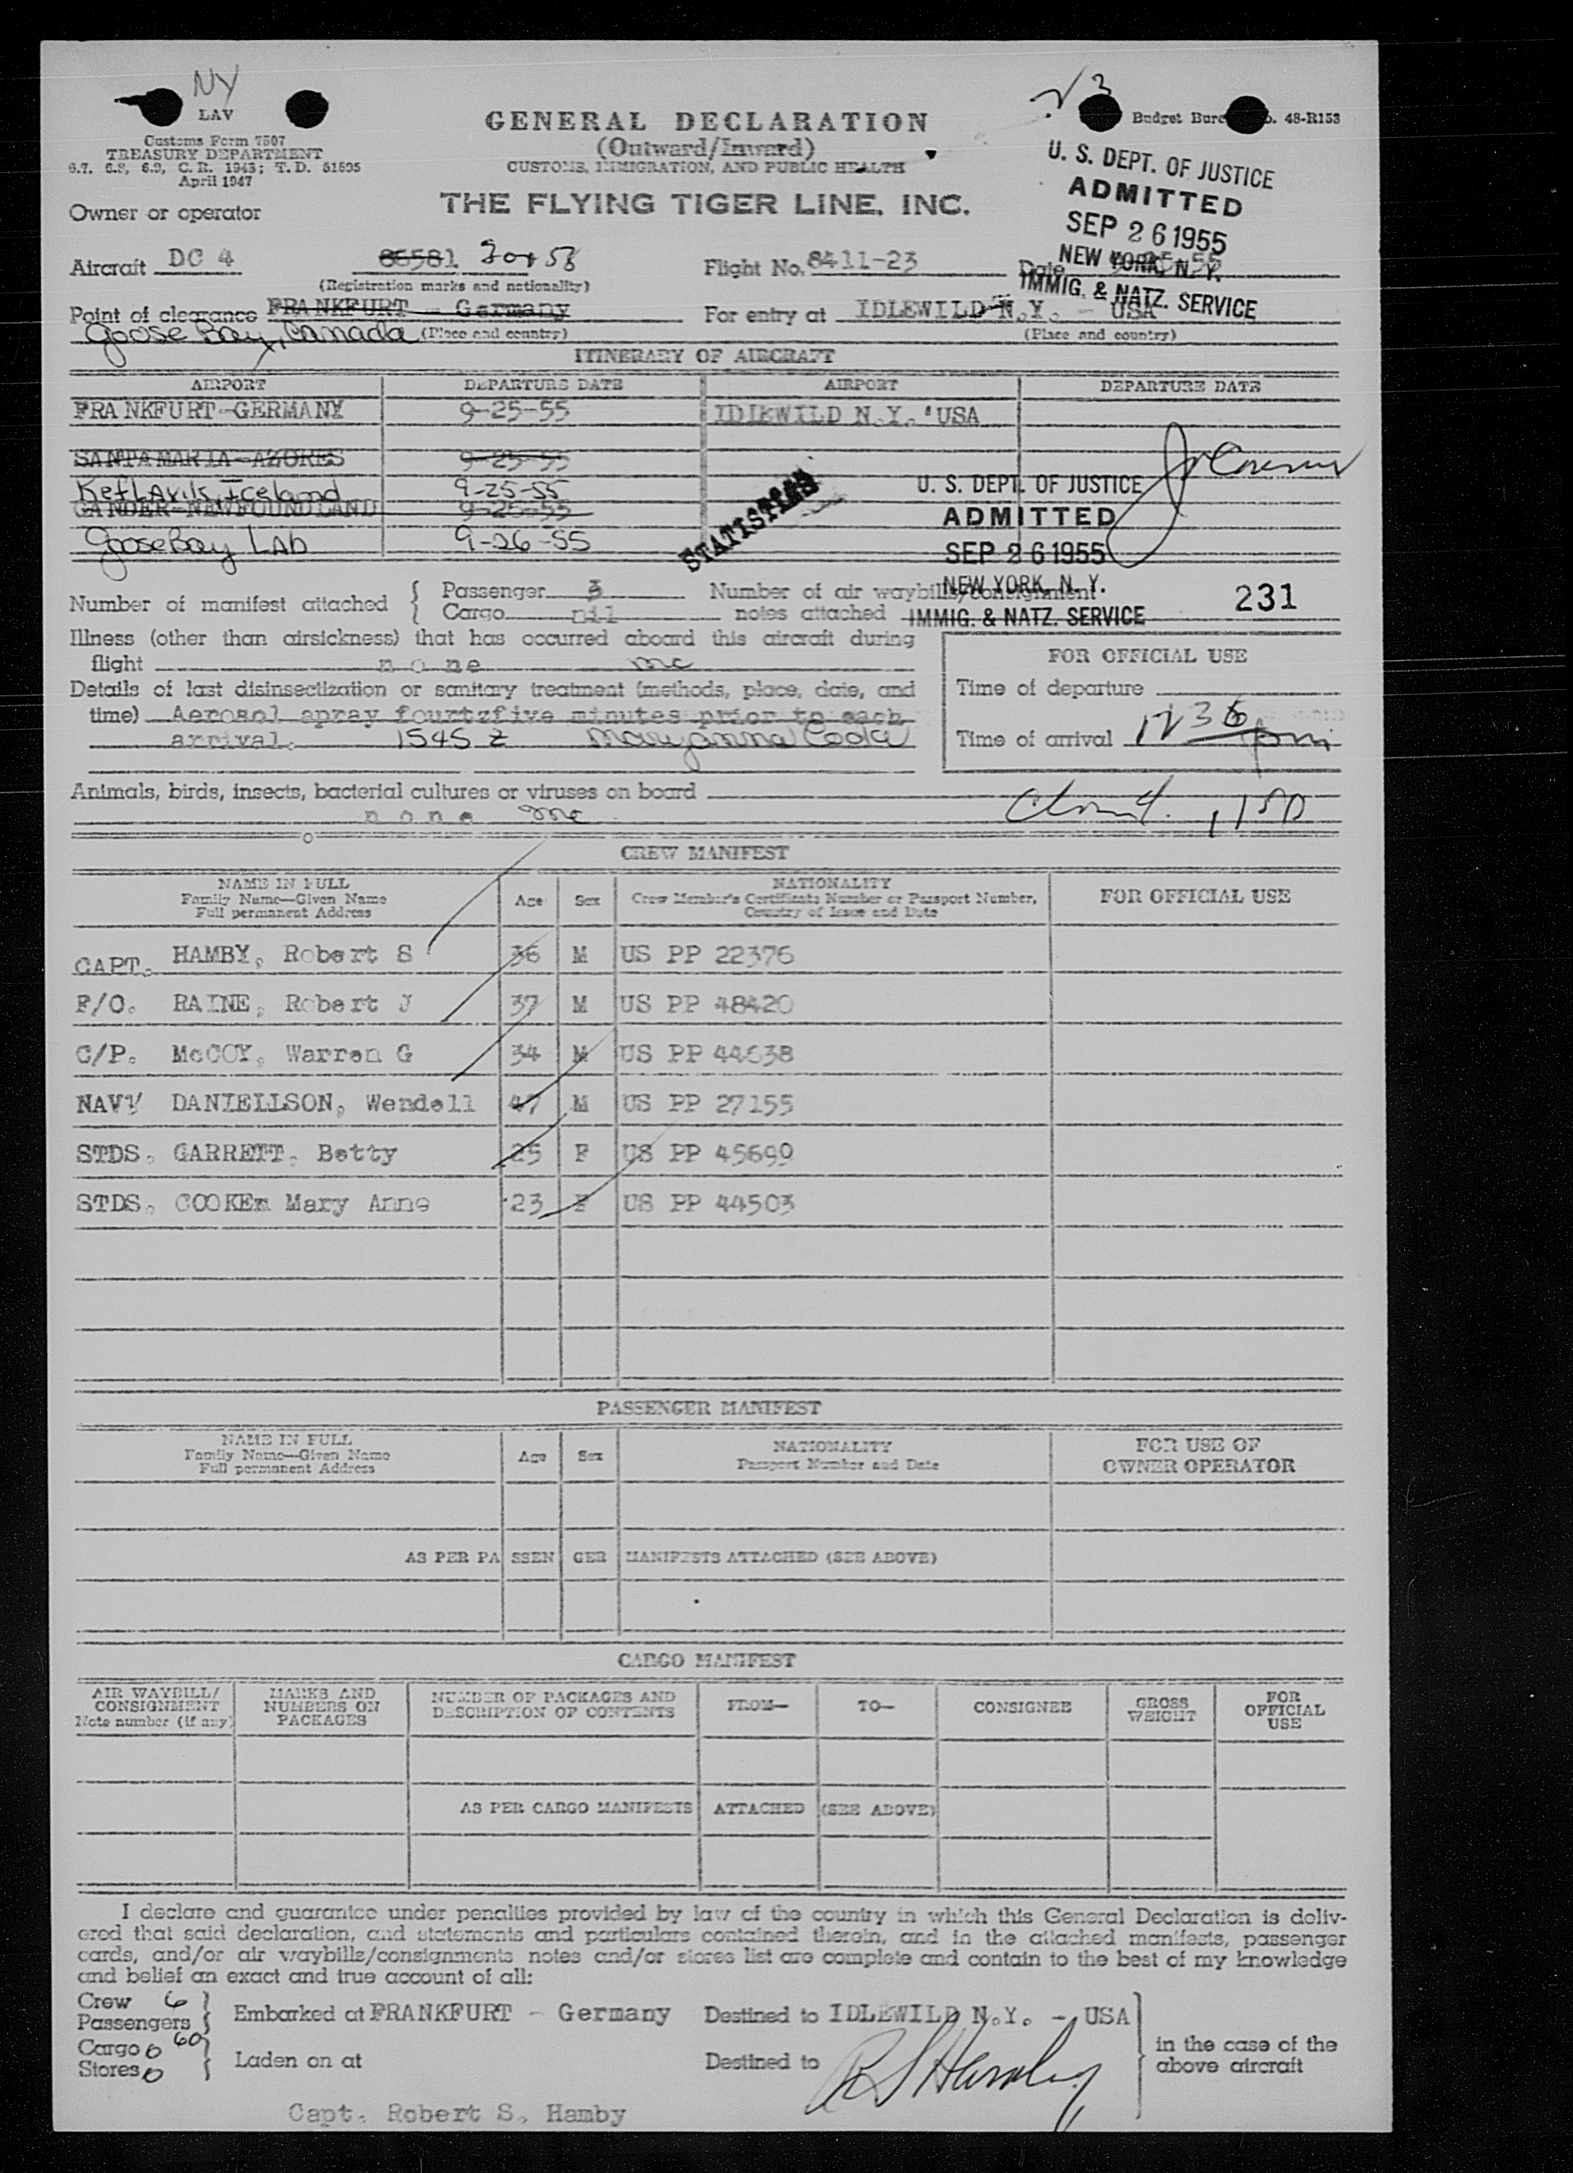 NY
LAV
Customs Form 7507
TREASURY DEPARTMENT
6.7, 6.8, 6.9, C. R. 1945; T. D. 51595
April 1947
GENERAL DECLARATION
(Outward/Inward)
CUSTOMS, IMMIGRATION, AND PUBLIC HEALTH
Budget Bureau No. 48-R153
U. S. DEPT. OF JUSTICE
ADMITTED
SEP 26 1955
NEW YORK, N. Y.
IMMIG. & NATZ. SERVICE
Owner or operator
THE FLYING TIGER LINE, INC.
Aircraft DC 4 86581
(Registration marks and nationality)
Flight No. 8411-23
Date
Point of clearance FRANKFURT - Germany
Goose Bay, Canada (Place and country)
For entry at IDLEWILD N.Y. - USA
(Place and country)
ITINERARY OF AIRCRAFT
AIRPORT DEPARTURE DATE AIRPORT DEPARTURE DATE
FRANKFURT-GERMANY 9-25-55 IDLEWILD N.Y. USA
SANTA MARIA-AZORES 9-25-55
Keflavik, Iceland 9-25-55
GANDER-NEWFOUNDLAND 9-26-55
Goose Bay LAB 9-26-55
STATISTICS
U. S. DEPT. OF JUSTICE
ADMITTED
SEP 26 1955
NEW YORK, N. Y.
IMMIG. & NATZ. SERVICE
231
Number of manifest attached { Passenger 3
Cargo nil
Number of air waybills/consignment
notes attached
Illness (other than airsickness) that has occurred aboard this aircraft during
flight none mc
Details of last disinsectization or sanitary treatment (methods, place, date, and
time) Aerosol spray fourtzfive minutes prior to each
arrival. 1545 Z Maryanna Cooke
FOR OFFICIAL USE
Time of departure
Time of arrival 1235 pm
Animals, birds, insects, bacterial cultures or viruses on board
none mc
CREW MANIFEST
NAME IN FULL
Family Name—Given Name
Full permanent Address
Age
Sex
NATIONALITY
Crew Member's Certificate Number or Passport Number,
Country of Issue and Date
FOR OFFICIAL USE
CAPT. HAMBY, Robert S 36 M US PP 22376
F/O. RAINE, Robert J 37 M US PP 48420
C/P. McCOY, Warren G 34 M US PP 44638
NAVY DANIELLSON, Wendell 47 M US PP 27155
STDS. GARRETT. Betty 25 F US PP 45699
STDS. COOKEm Mary Anne 23 F US PP 44503
PASSENGER MANIFEST
NAME IN FULL
Family Name—Given Name
Full permanent Address
Age
Sex
NATIONALITY
Passport Number and Date
FOR USE OF
OWNER OPERATOR
AS PER PASSENGER MANIFESTS ATTACHED (SEE ABOVE)
CARGO MANIFEST
AIR WAYBILL/
CONSIGNMENT
Note number (if any)
MARKS AND
NUMBERS ON
PACKAGES
NUMBER OF PACKAGES AND
DESCRIPTION OF CONTENTS
FROM—
TO—
CONSIGNEE
GROSS
WEIGHT
FOR
OFFICIAL
USE
AS PER CARGO MANIFESTS ATTACHED (SEE ABOVE)
I declare and guarantee under penalties provided by law of the country in which this General Declaration is deliv-
ered that said declaration, and statements and particulars contained therein, and in the attached manifests, passenger
cards, and/or air waybills/consignments notes and/or stores list are complete and contain to the best of my knowledge
and belief an exact and true account of all:
Crew 6
Passengers 60
Embarked at FRANKFURT - Germany Destined to IDLEWILD N.Y. - USA
Cargo 0
Stores 0
Laden on at Destined to
in the case of the
above aircraft
R S Hamby
Capt. Robert S. Hamby